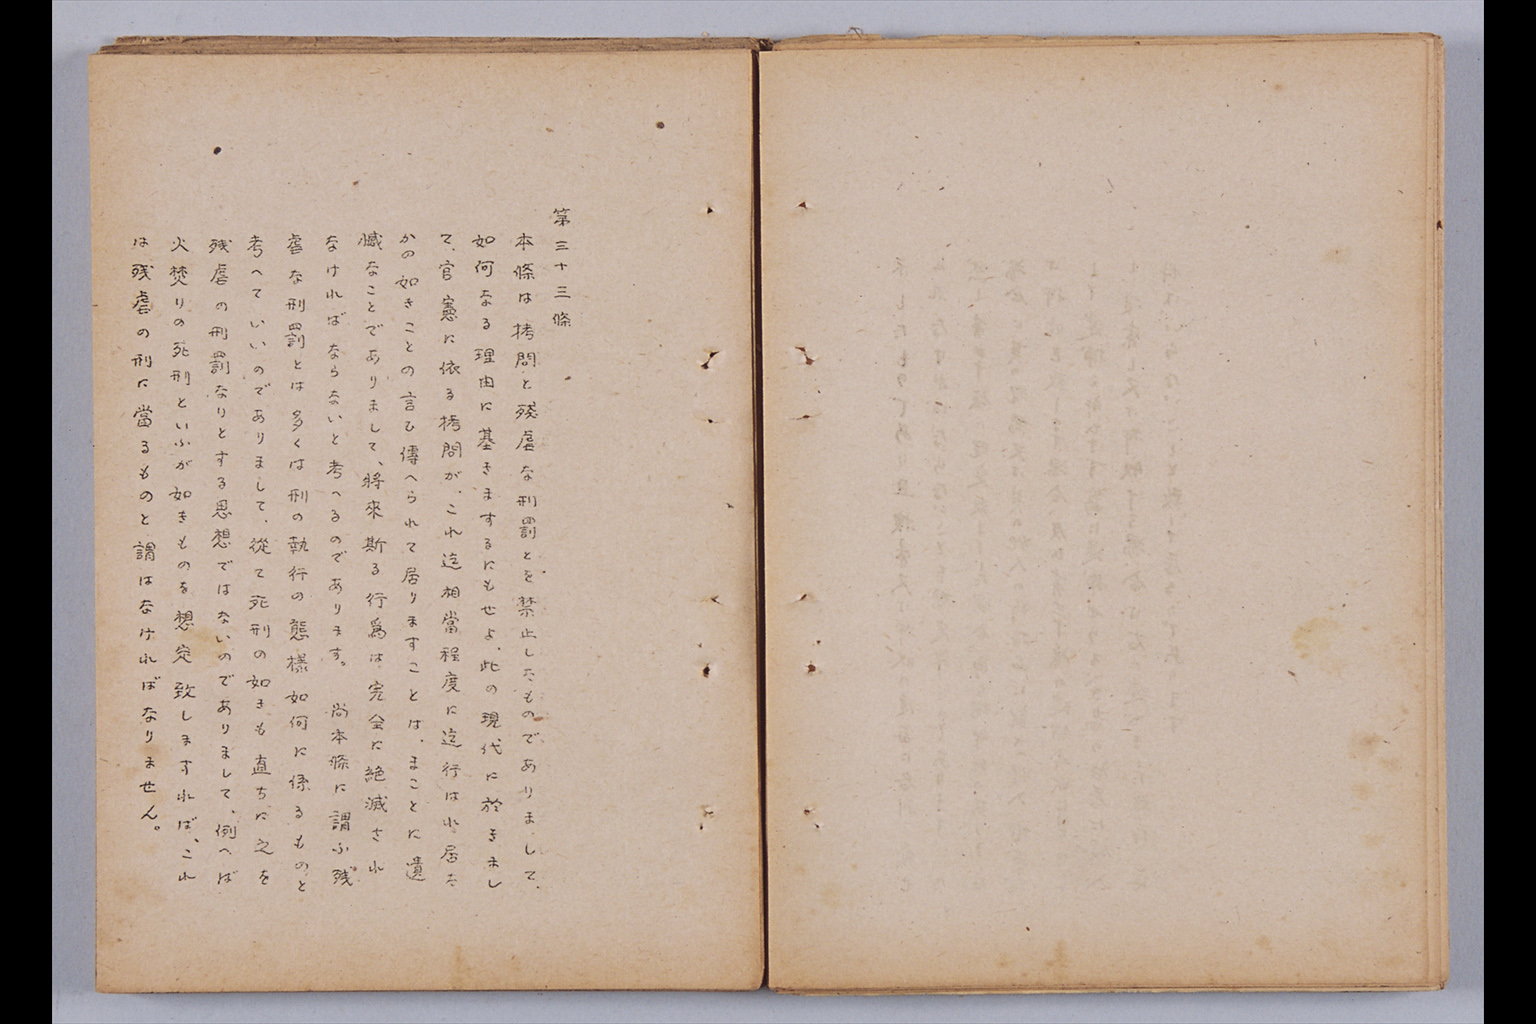 第三十三條
本條は拷問と残虐な刑罰とを禁止したものでありまして、
如何なる理由に基きまするにもせよ、此の現代に於きまし
て、官憲に依る拷問が、これ迄相當程度に迄行はれ居た
かの如きことの言ひ傳へられて居りますことは、まことに遺
憾なことでありまして、將來斯る行爲は完全に絶滅され
なければならないと考へるのであります。尚本條に謂ふ残
虐な刑罰とは多くは刑の執行の態様如何に係るものと
考へていいのでありまして、從て死刑の如きも直ちに之を
残虐の刑罰なりとする思想ではないのでありまして、例へば
火焚りの死刑といふが如きものを想定致しますれば、これ
は残虐の刑に當るものと謂はなければなりません。